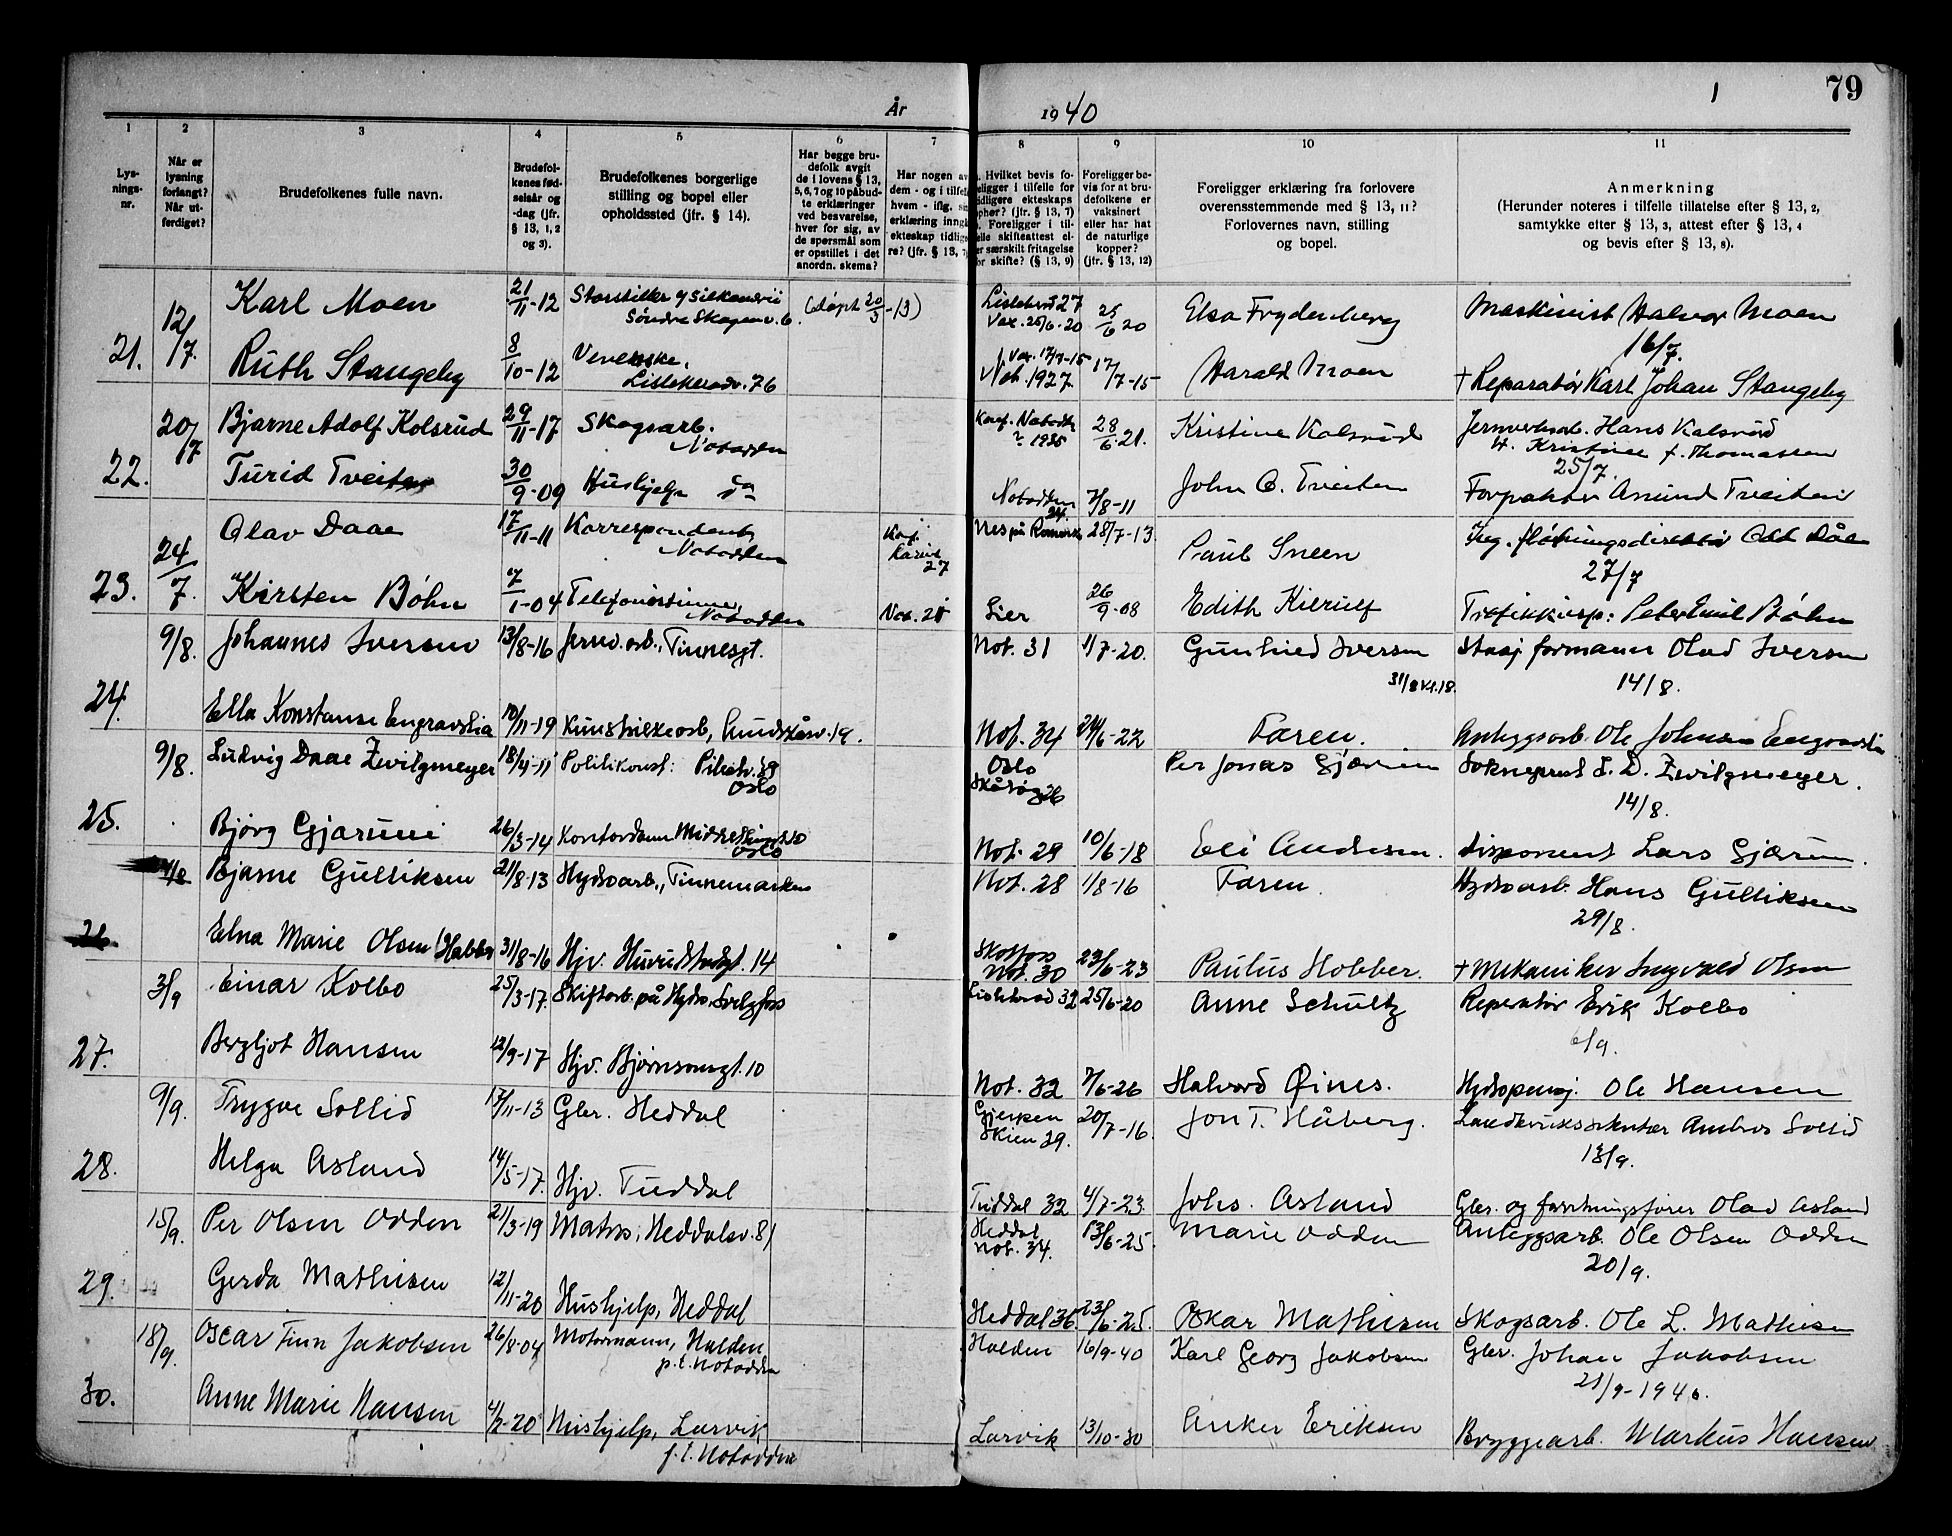 79
1
År 1940
1
2
3
4
5
6
7
8
9
10
11
Lys-
nings-
nr.
Når er
lysning
forlangt?
Når ut-
ferdiget?
Brudefolkenes fulle navn.
Brudefol-
kenes fød-
selsår og
-dag (jfr.
§ 13, 1, 2
og 3).
Brudefolkenes borgerlige
stilling og bopel eller
opholdssted (jfr. § 14).
Har begge bru-
defolk avgit
de i lovens § 13,
5, 6, 7 og 10 påbud-
te erklæringer
ved besvarelse,
hver for sig, av
de spørsmål som
er opstillet i det
anordn. skema?
Har nogen av
dem - og i tilfelle
hvem - iflg. sin
erklæring inngå
ekteskap tidlige
re? (jfr. § 13, 7
. Hvilket bevis fo-
religger i tilfelle for
idligere ekteskaps
pher? (jfr. § 13, 7)
. Foreligger i til-
elle skifteattest el-
er særskilt fritagelse
or skifte? (§ 13, 9)
Foreligger be-
vis for at bru-
defolkene er
vaksinert
eller har hat
de naturlige
kopper?
(jfr. § 13, 12)
Foreligger erklæring fra forlovere
overensstemmende med § 13, 11?
Forlovernes navn, stilling
og bopel.
Anmerkning
(Herunder noteres i tilfelle tillatelse efter § 13, 2,
samtykke efter § 13, 3, attest efter § 13, 4
og bevis efter § 13, 8).
21. 12/7
Karl Moen 21/11-12
Søndre Skogenv. 6. (døpt 20/3-13)
Vax. 25/6-20 25/6 20 Elsa Frydenberg Maskinist Halvor Moen
16/7.
Ruth Stangeby 8/10-12 Veverske.
Not. 1927. 17/7-15 Harald Moen † Reparatør Karl Johan Stangeby
22. 20/7
Bjarne Adolf Kolsrud 29/11-17 Skogsarb.
Notodden
28/6 21. Kristine Kolsrud Jernverksarb. Hans Kolsrud
Kristine f. Thomassen
25/7.
Turid Tveiten 30/9-09 Hushjelp
Notodden 24. 7/8-11 John C. Tveiten Forpakter Anund Tveiten
23. 24/7.
Olav Daae 17/11-11 Korrespondent,
Notodden
Nes på Romerike 28/7-13 Paul Sneen Ing. fløtningsdirektør Odd Dåe
27/7
Kirsten Bøhn 7/1-04 Telefonistinne,
Notodden
Lier 26/9-08 Edith Kierulf Trafikkinsp: Peter Emil Bøhn
24. 9/8.
Johannes Iversen 13/8-16 Jernv. arb., Tinnesgt.
Not. 31 1/7-20. Gunhild Iversen formann Olav Iversen
14/8.
Ella Konstanse Engravslia 10/11-19 Kunstsilkearb,
Not. 34 24/6-22 Faren. Anleggsarb. Ole Johnsen Engravslia
25. 9/8.
Ludvig Daae Zwilgmeyer 18/4-11 Politikonst:
Oslo
Oslo Per Jonas Gjærum Sokneprest L. D. Zwilgmeyer.
14/8.
Bjørg Gjærum 26/3-14
Oslo
Not. 29 10/6-18 Eli Andersen. disponent Lars Gjærum.
26.
Bjarne Gulliksen 21/8-13 Hydroarb., Tinnemarken
Not. 28 1/8-16 Faren. Hydroarb. Hans Gulliksen
29/8.
Elna Marie Olsen (Hobber 31/8-16 Hjv. Huvudstadgt. 14
Skotfoss
Not. 30 23/6-23 Paulus Hobber. † Mekaniker Ingvald Olsen
27. 3/9
Einar Kolbo 25/3-17. Skiftarb. på Hydro, Svelgfoss
25/6-20 Anne Schultz Reparatør Erik Kolbo
6/9.
Bergljot Hansen 12/9-17 Hjv. Bjørnsonsgt. 10
Not. 32 7/6-26 Halvard Øines. Hydropensj. Ole Hansen
28. 9/9.
Trygve Sollid 17/11-13 Gbr. Heddal
Gjerpen
Skien 39. 20/7-16. Jon T. Håberg. Landbrukssekretær Ambros Sollid
13/9.
Helga Åsland 14/5-17. Hjv. Tuddal
Tuddal 32 4/7-23 Johs. Åsland Gbr. og forretningsfører Olav Åsland
29. 15/9.
Per Olsen Odden 21/3-19 Matros, Heddalsv. 81
Heddal
Not. 34. 13/6-25. Marie Odden Anleggsarb. Ole Olsen Odden
20/9.
Gerda Mathisen 12/11-20 Hushjelp, Heddal
Heddal 36. 23/6-25. Oskar Mathisen Skogsarb. Ole L. Mathisen
30. 18/9.
Oscar Finn Jakobsen 26/8-04 Motormann, Halden
p.t. Notodden
Halden 16/9-40 Karl Georg Jakobsen Gbr. Johan Jakobsen
21/9-1940.
Anne Marie Hansen 4/2-20 Hushjelp, Larvik
p.t. Notodden
Larvik 13/10-30 Anker Eriksen Bryggearb. Markus Hansen